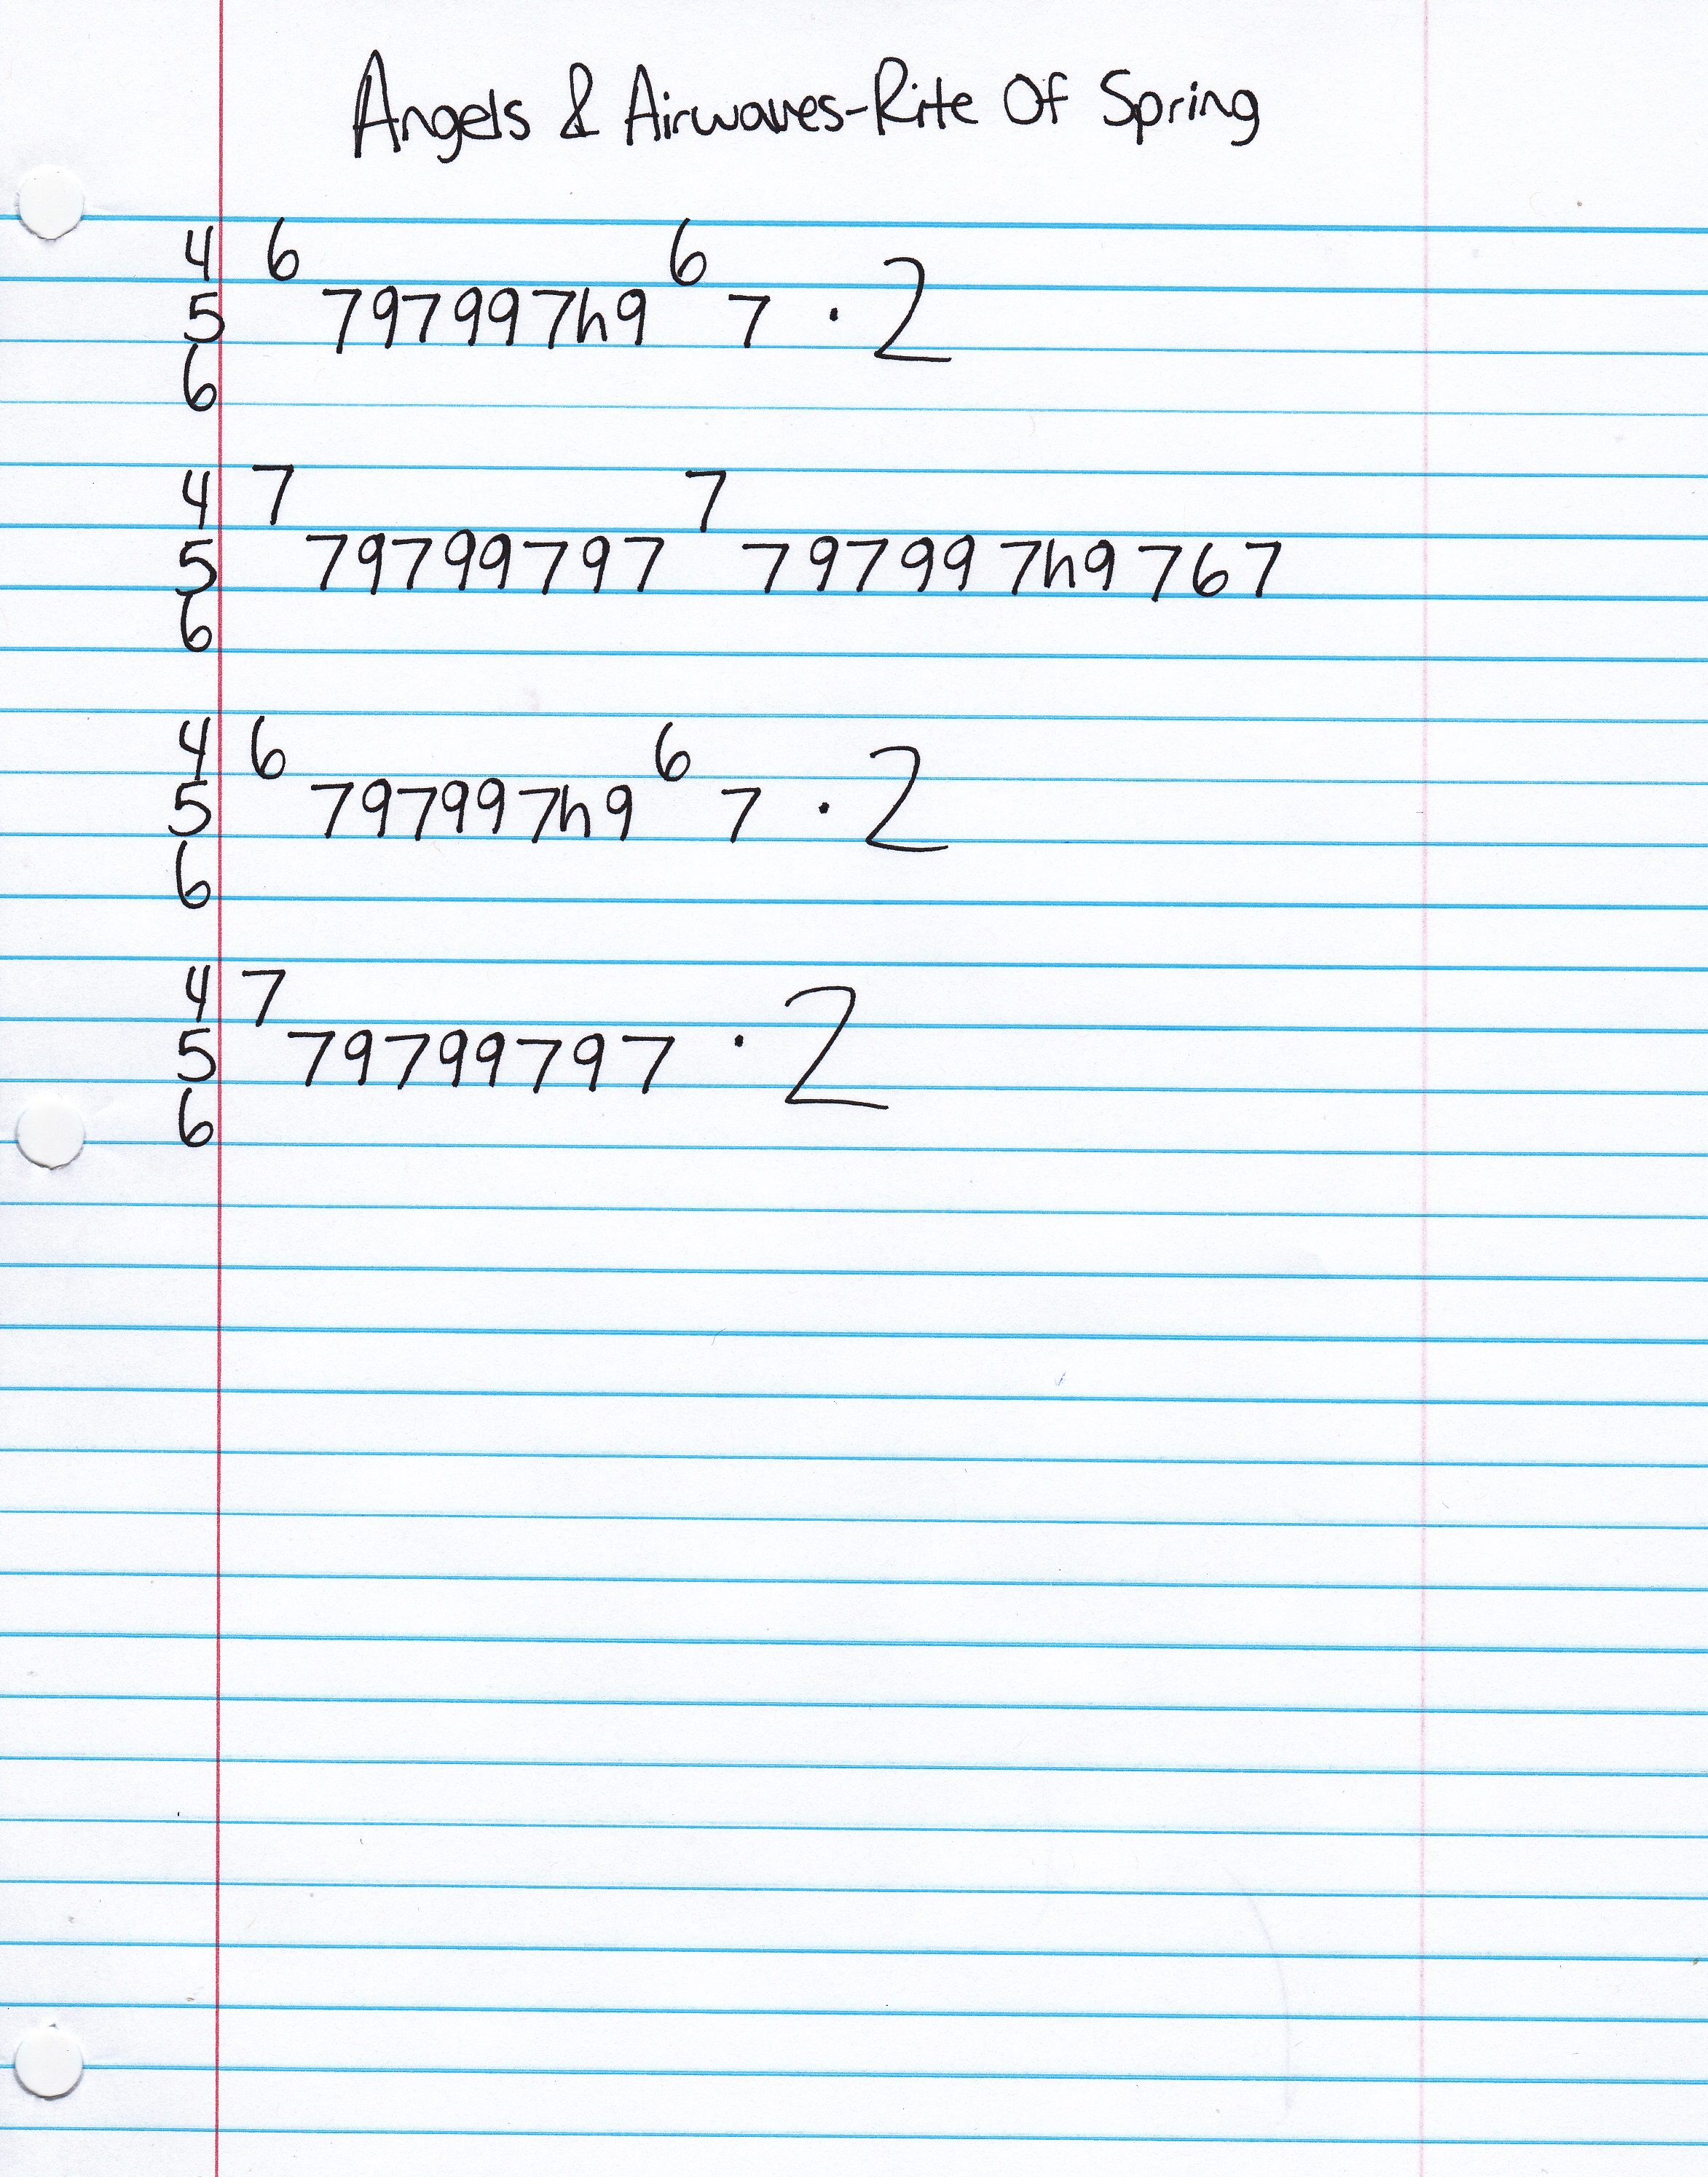 Angels & Airwaves-Rite Of Spring
4 6 6
5 797997h9 7 · 2
6
4 7 7
5 79799797 797997h9767
6
4 6 6
5 797997h9 7 · 2
6
4 7
5 79799797 · 2
6